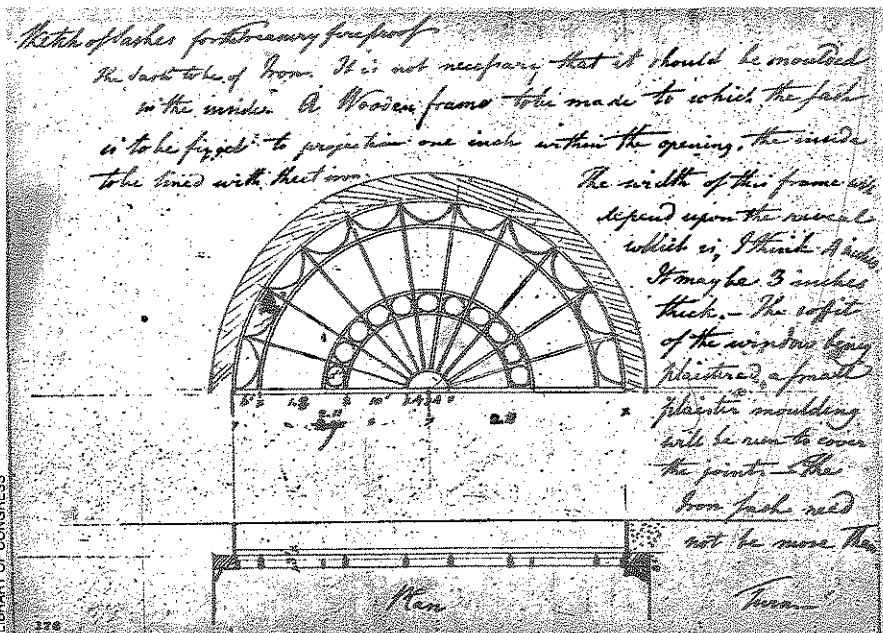 Sketch of Sashes for the Treasury fireproof
The Sash to be of Iron. It is not necessary that it should be moulded
in the inside. A Wooden frame to be made to which the sash
is to be fixed to projection one inch within the opening, the inside
to be lined with sheet iron.
The width of this frame will
depend upon the reveal
which is, I think 4 inches
It may be 3 inches
thick. – The soffit
of the window being
plaistered, a small
plaister moulding
will be run to cover
the joint. – The
Iron sash need
not be more than
Turn
Plan
LIBRARY OF CONGRESS